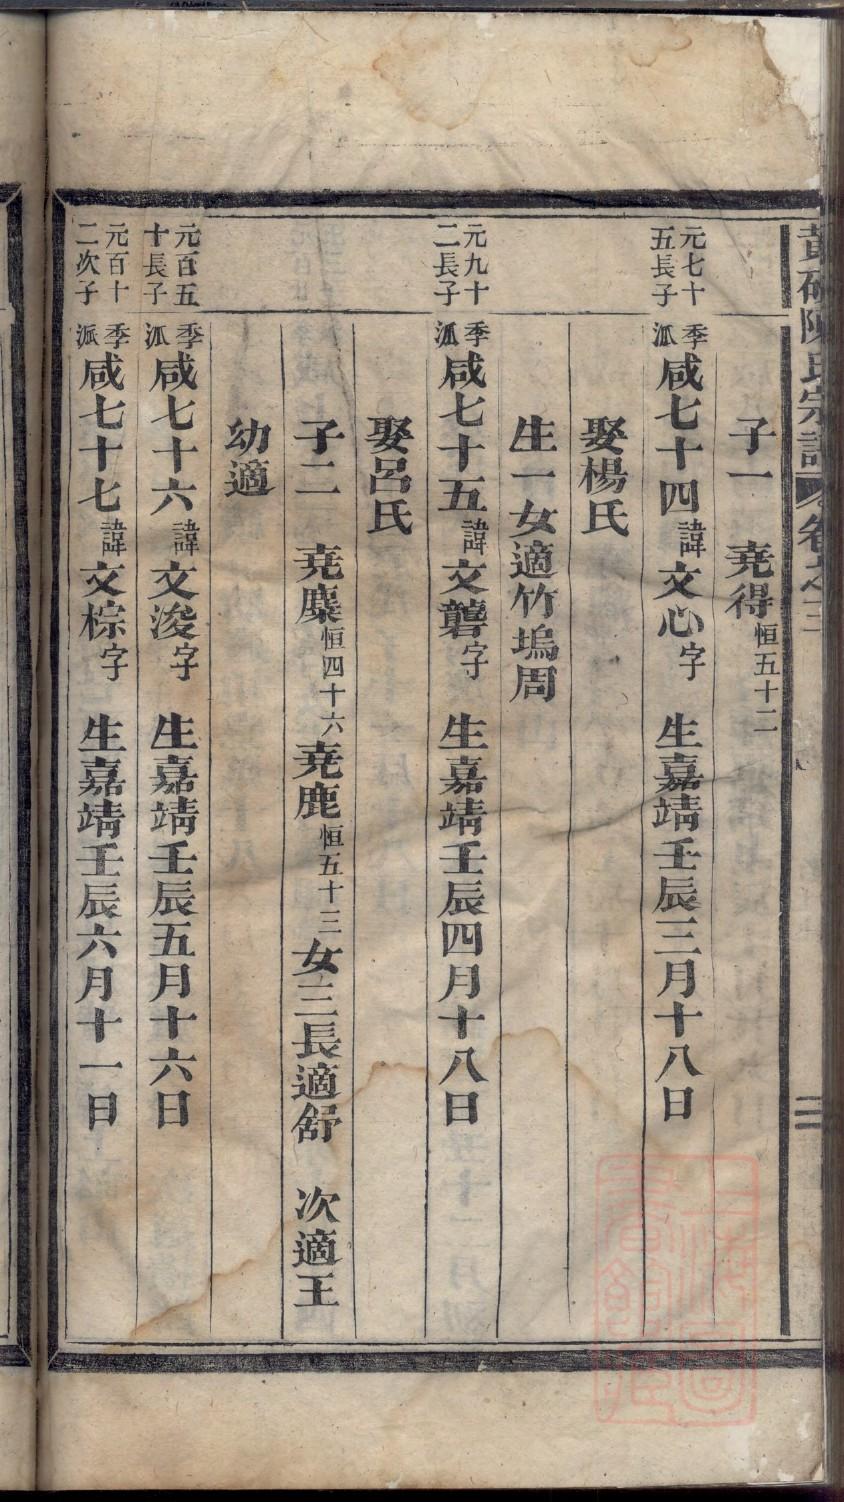 陳氏宗譜 卷之三 二
子一 堯得恒五十二
元七十五長子 季派咸七十四諱文心字 生嘉靖壬辰三月十八日
娶楊氏
生一女適竹塢周
元九十二長子 季派咸七十五諱文礱字 生嘉靖壬辰四月十八日
娶呂氏
子二 堯麇恒四十六堯鹿恒五十三女三長適舒 次適王
幼適
元百五十長子 季派咸七十六諱文浚字 生嘉靖壬辰五月十六日
元百十二次子 季派咸七十七諱文棕字 生嘉靖壬辰六月十一日